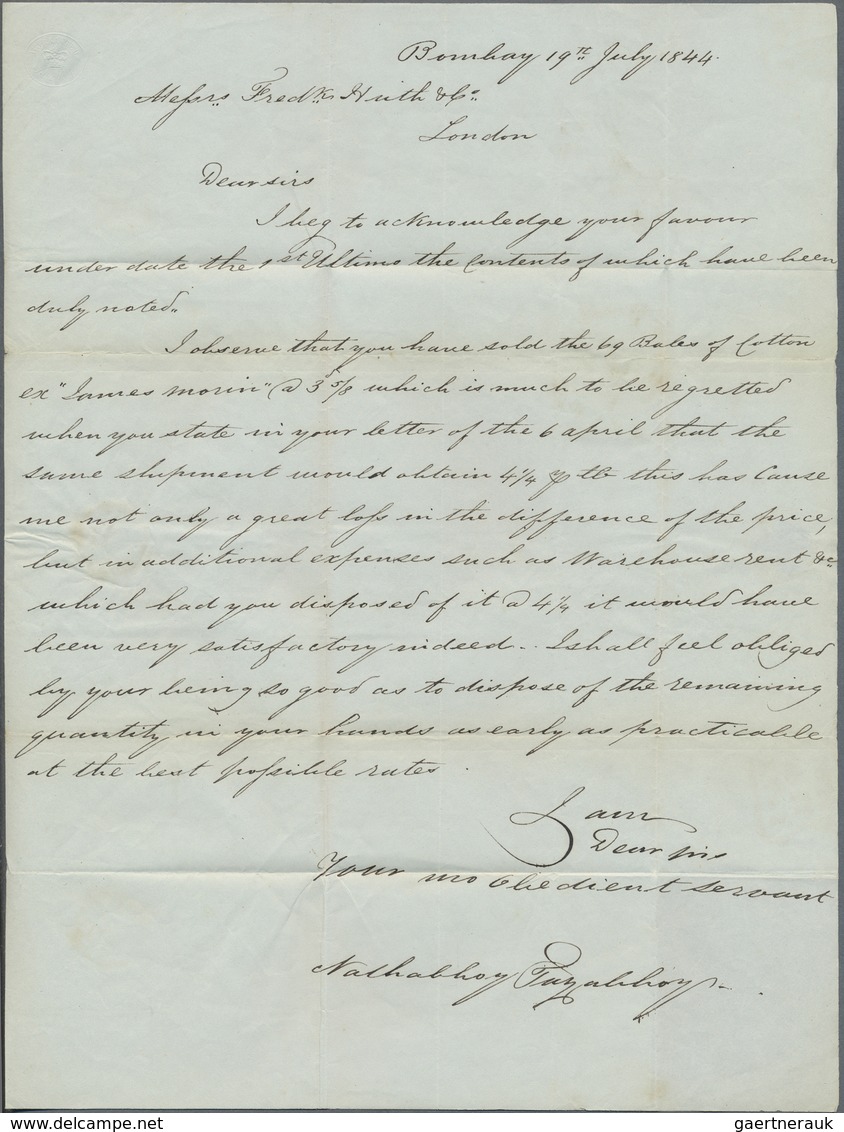 Bombay 19th July 1844.
Messrs Fredk Huth & Co.
London
Dear sirs
I beg to acknowledge your favour
under date the 1st Ultimo the Contents of which have been
duly noted.
I observe that you have sold the 69 Bales of Cotton
ex "James morin" @ 3 5/8 which is much to be regretted
when you state in your letter of the 6 april that the
same shipment would obtain 4 1/4 p lb this has Cause
me not only a great loss in the difference of the price,
but in additional expenses such as Warehouse rent &c
which had you disposed of it @ 4 1/4 it would have
been very satisfactory indeed.. I shall feel obliged
by your being so good as to dispose of the remaining
quantity in your hands as early as practicable
at the best possible rates.
I am
Dear sirs
Your mo Obedient servant
Nathabhoy Fazabhoy
www.delcampe.net
gaertnerauk